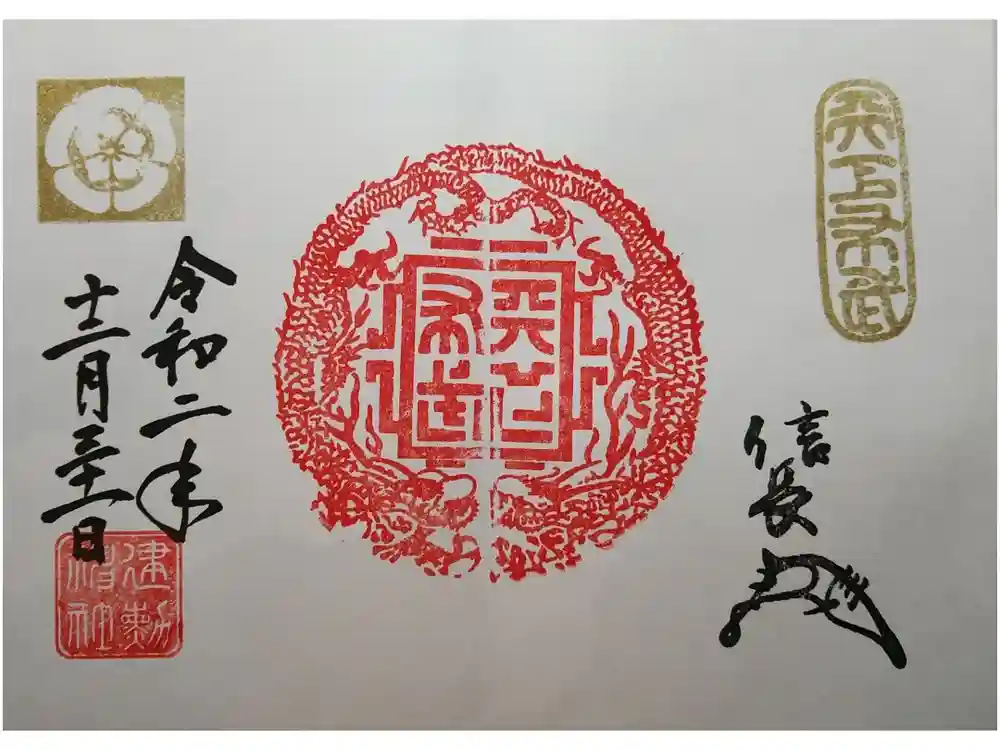 天下布武
信長
天下
布武
令和二年
十二月三十一日
建勲
神社